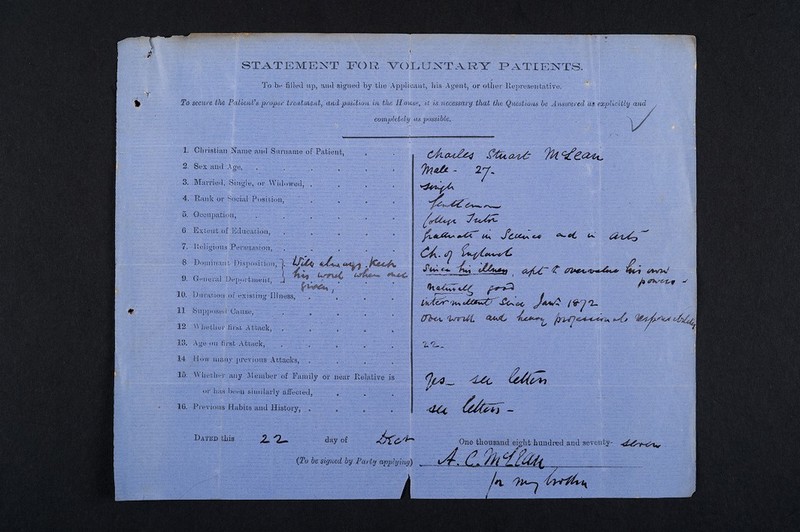 STATEMENT FOR VOLUNTARY PATIENTS.
To be filled up, and signed by the Applicant, his Agent, or other Representative.
To secure the Patient's proper treatment, and position in the House, it is necessary that the Questions be Answered as explicitly and
completely as possible.
1. Christian Name and Surname of Patient, Charles Stuart McLean
2. Sex and Age, Male - 27-
3. Married, Single, or Widowed, single
4. Rank or Social Position, Gentleman
5. Occupation, College Tutor
6 Extent of Education, Graduate in Science and in Arts
7. Religious Persuasion, Ch. of England
8 Dominant Disposition, Will always keep Since his illness, apt to overvalue his own
powers -
9. General Deportment, his word when once given, naturally good
10. Duration of existing Illness, intermittent since Jany 1872
11 Supposed Cause, over work and heavy professional responsibility
12 Whether first Attack,
13. Age on first Attack, 22-
14 How many previous Attacks,
15. Whether any Member of Family or near Relative is
or has been similarly affected, Yes - see letters
16. Previous Habits and History, see letters -
DATED this 22 day of Dect One thousand eight hundred and seventy- seven
(To be signed by Party applying) A. C. McLean
for my brother